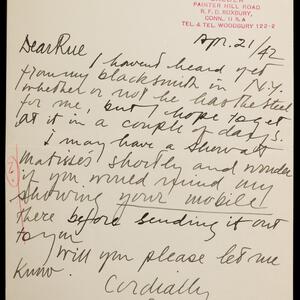 PAINTER HILL ROAD
R.F.D. ROXBURY,
CONN. U S A
TEL. & TEL. WOODBURY 122-2
Apr. 21/42
Dear Rue
I haven't heard yet
from my blacksmith in N.Y.
whether or not he has the steel
for me, but I hope to get
at it in a couple of days.
I may have a show at
Matisses' shortly and wonder
if you would mind my
showing your mobile
there before sending it out
to you
Will you please let me
know.
Cordially